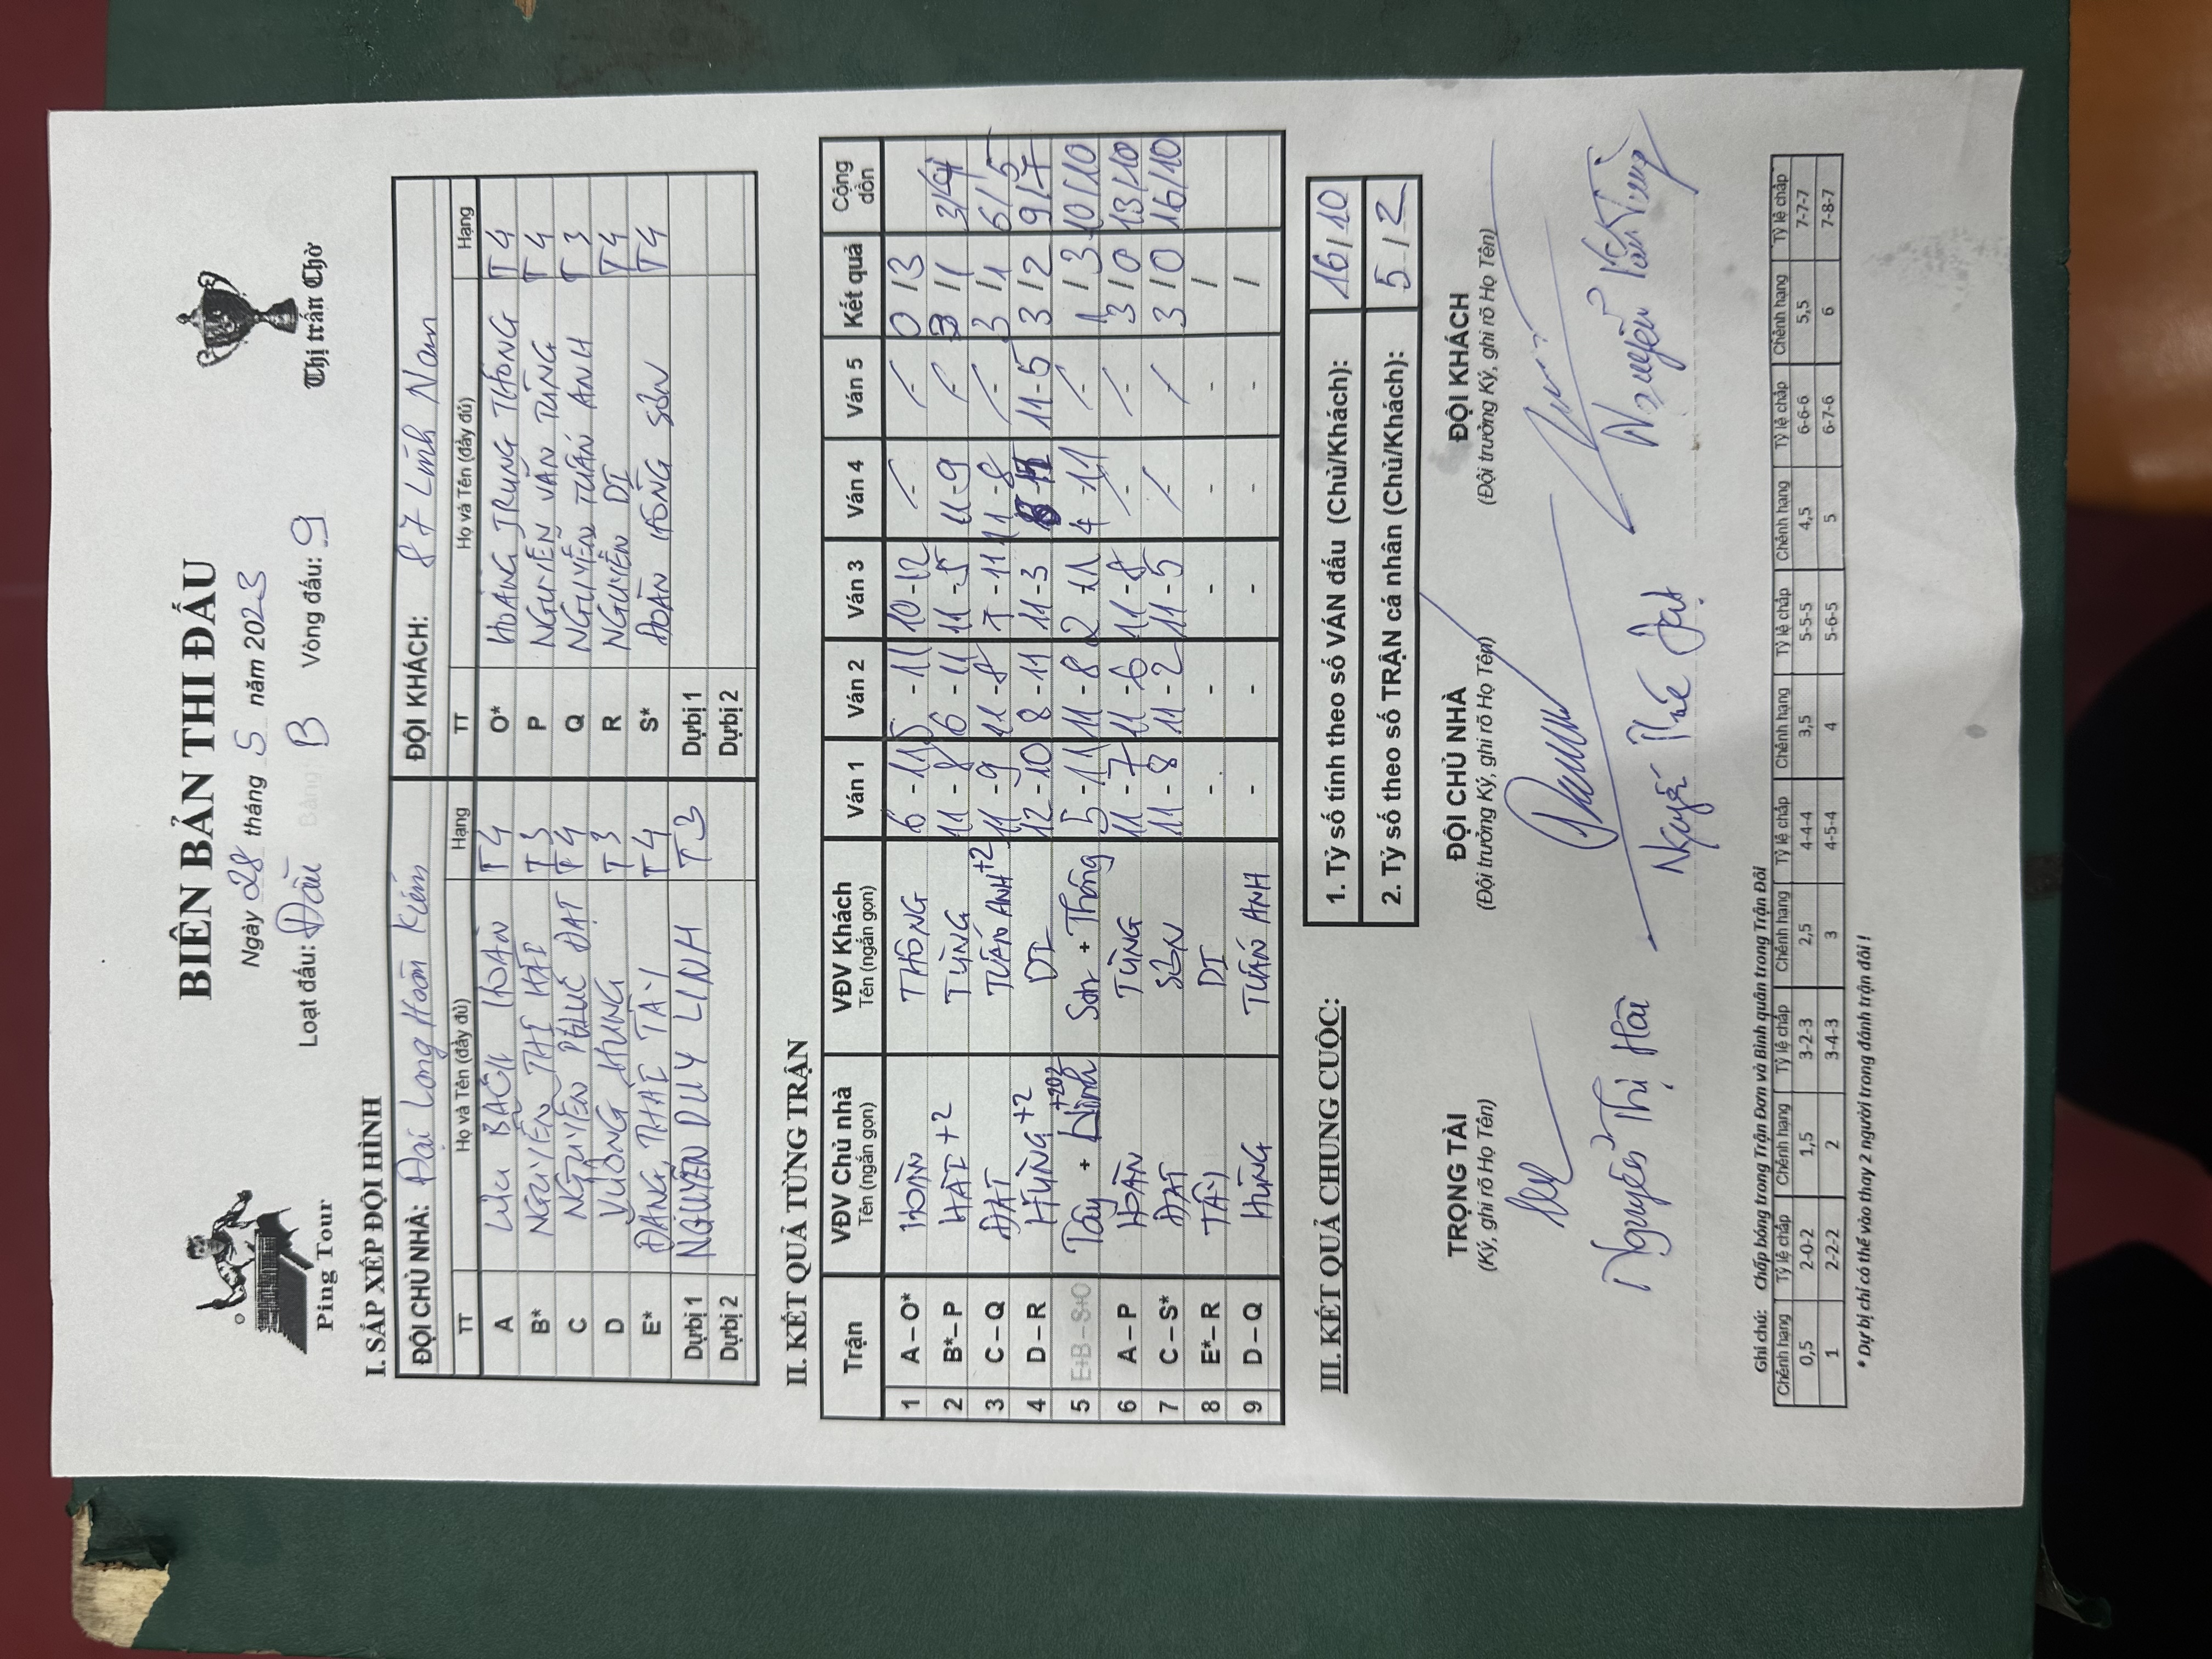 Ping Tour
BIÊN BẢN THI ĐẤU
Thị trấn Chờ
Ngày 28 tháng 5 năm 2023
Loạt đấu: Đấu Bảng B Vòng đấu: 9
I. SẮP XẾP ĐỘI HÌNH
ĐỘI CHỦ NHÀ: Đại Long Hoàn Kiếm ĐỘI KHÁCH: 87 Lĩnh Nam
TT Họ và Tên (đầy đủ) Hạng TT Họ và Tên (đầy đủ) Hạng
A LƯU BÁCH HOÀN T4 O* HOÀNG TRUNG THÔNG T4
B* NGUYỄN THỊ HẢI T3 P NGUYỄN VĂN TÙNG T4
C NGUYỄN PHÚC ĐẠT T4 Q NGUYỄN TUẤN ANH T3
D VƯƠNG HƯNG T3 R NGUYỄN DI T4
E* ĐẶNG THÁI TÂY T4 S* ĐOÀN HỒNG SƠN T4
Dự bị 1 NGUYỄN DUY LINH T3 Dự bị 1
Dự bị 2 Dự bị 2
II. KẾT QUẢ TỪNG TRẬN
Trận VĐV Chủ nhà VĐV Khách Ván 1 Ván 2 Ván 3 Ván 4 Ván 5 Kết quả Cộng dồn
Tên (ngắn gọn) Tên (ngắn gọn)
1 A – O* HOÀN THÔNG 6 - 11 5 - 11 10 - 12 - - 0 / 3
2 B* – P HẢI +2 TÙNG 11 - 8 6 - 11 11 - 5 11 - 9 - 3 / 1 3/4
3 C – Q ĐẠT TUẤN ANH +2 11 - 9 11 - 8 7 - 11 11 - 8 - 3 / 1 6/5
4 D – R HÙNG +2 DI 12 - 10 8 - 11 11 - 3 11 - 5 3 / 2 9/7
5 E+B – S+O Tây + Linh +202 Sơn + Thông 5 - 11 11 - 8 2 - 11 4 - 11 - 1 / 3 10/10
6 A – P HOÀN TÙNG 11 - 7 11 - 6 11 - 8 - - 3 / 0 13/10
7 C – S* ĐẠT SƠN 11 - 8 11 - 2 11 - 5 - - 3 / 0 16/10
8 E* – R TÂY DI - - - - - /
9 D – Q HÙNG TUẤN ANH - - - - - /
III. KẾT QUẢ CHUNG CUỘC:
1. Tỷ số tính theo số VÁN đấu (Chủ/Khách): 16/10
2. Tỷ số theo số TRẬN cá nhân (Chủ/Khách): 5/2
TRỌNG TÀI ĐỘI CHỦ NHÀ ĐỘI KHÁCH
(Ký, ghi rõ Họ Tên) (Đội trưởng Ký, ghi rõ Họ Tên) (Đội trưởng Ký, ghi rõ Họ Tên)
Nguyễn Thị Hài Nguyễn Phúc Đạt Nguyễn Văn Tùng
Ghi chú: Chấp bóng trong Trận Đơn và Bình quân trong Trận Đôi
Chênh hạng Tỷ lệ chấp Chênh hạng Tỷ lệ chấp Chênh hạng Tỷ lệ chấp Chênh hạng Tỷ lệ chấp Chênh hạng Tỷ lệ chấp Chênh hạng Tỷ lệ chấp
0,5 2-0-2 1,5 3-2-3 2,5 4-4-4 3,5 5-5-5 4,5 6-6-6 5,5 7-7-7
1 2-2-2 2 3-4-3 3 4-5-4 4 5-6-5 5 6-7-6 6 7-8-7
* Dự bị chỉ có thể vào thay 2 người trong đánh trận đôi !